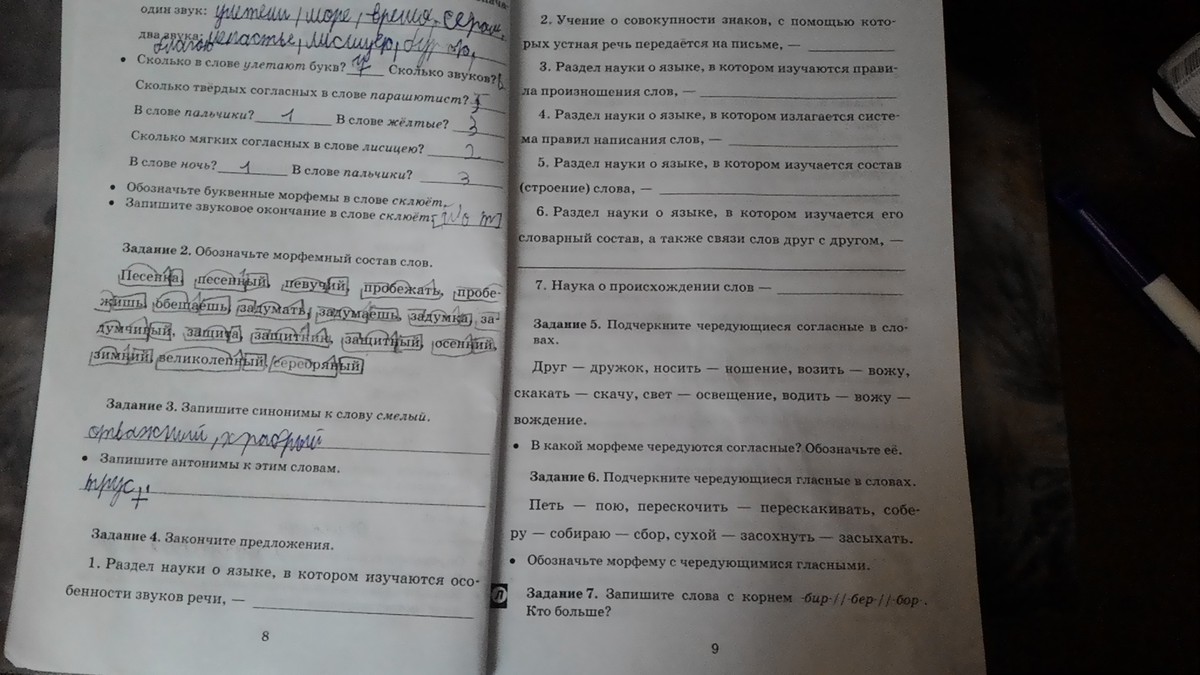 один звук: улетели, море, время,
два звука: ненастье, лисицею,
• Сколько в слове улетают букв? 7 Сколько звуков?
Сколько твёрдых согласных в слове парашютист? 5
В слове пальчики? 1 В слове жёлтые? 3
Сколько мягких согласных в слове лисицею? 2
В слове ночь? 1 В слове пальчики? 3
• Обозначьте буквенные морфемы в слове склюёт.
• Запишите звуковое окончание в слове склюёт.
Задание 2. Обозначьте морфемный состав слов.
Песенка, песенный, певучий, пробежать, пробе-
жишь, обещаешь, задумать, задумаешь, задумка, за-
думчивый, защита, защитник, защитный, осенний,
зимний, великолепный, серебряный
Задание 3. Запишите синонимы к слову смелый.
отважний, храбрый
• Запишите антонимы к этим словам.
трус
Задание 4. Закончите предложения.
1. Раздел науки о языке, в котором изучаются осо-
бенности звуков речи, —
8
2. Учение о совокупности знаков, с помощью кото-
рых устная речь передаётся на письме, —
3. Раздел науки о языке, в котором изучаются прави-
ла произношения слов, —
4. Раздел науки о языке, в котором излагается систе-
ма правил написания слов, —
5. Раздел науки о языке, в котором изучается состав
(строение) слова, —
6. Раздел науки о языке, в котором изучается его
словарный состав, а также связи слов друг с другом, —
7. Наука о происхождении слов —
Задание 5. Подчеркните чередующиеся согласные в сло-
вах.
Друг — дружок, носить — ношение, возить — вожу,
скакать — скачу, свет — освещение, водить — вожу —
вождение.
• В какой морфеме чередуются согласные? Обозначьте её.
Задание 6. Подчеркните чередующиеся гласные в словах.
Петь — пою, перескочить — перескакивать, собе-
ру — собираю — сбор, сухой — засохнуть — засыхать.
• Обозначьте морфему с чередующимися гласными.
Л Задание 7. Запишите слова с корнем -бир-//-бер-//-бор-.
Кто больше?
9